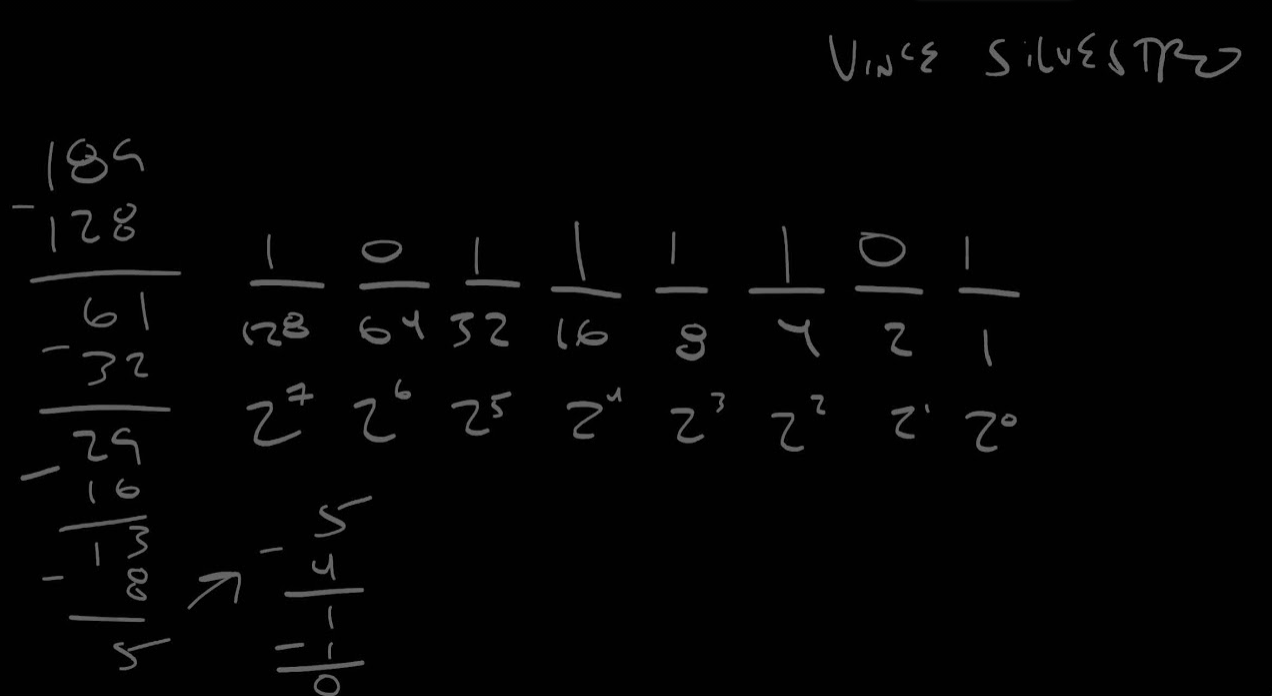 VINCE SILVESTRO
189
- 128
61
- 32
29
- 16
13
- 8
5
1 0 1 1 1 1 0 1
128 64 32 16 8 4 2 1
2^7 2^6 2^5 2^4 2^3 2^2 2^1 2^0
5
- 4
1
- 1
0